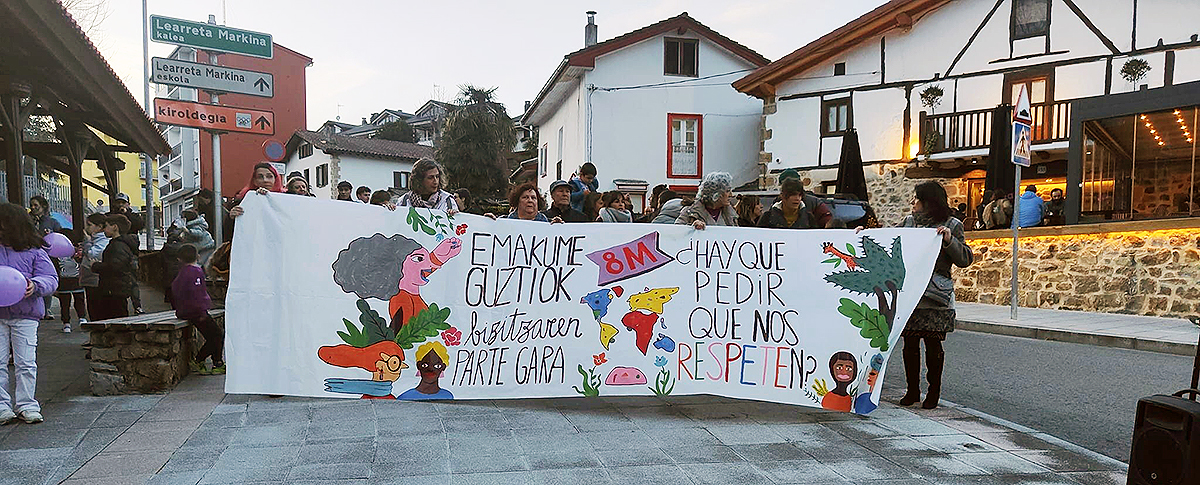 Learreta Markina
kalea
Learreta Markina
eskola
kiroldegia
EMAKUME
GUZTIOK
bizitzaren
PARTE GARA
8M
¿HAY QUE
PEDIR
QUE NOS
RESPETEN?